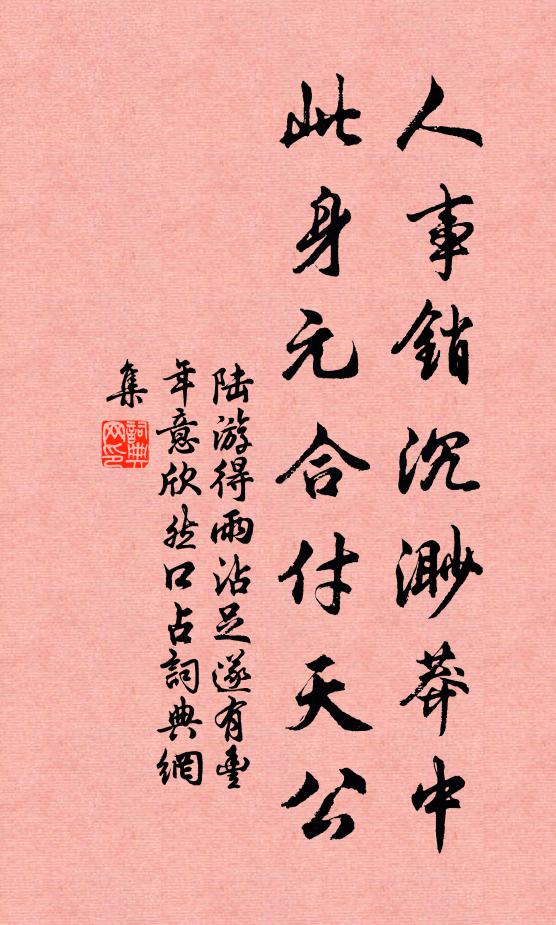 人事銷沉渺莽中
此身元合付天公
陆游得雨沾足遂有豐
年意欣然口占詞典網
集
詞典
网印